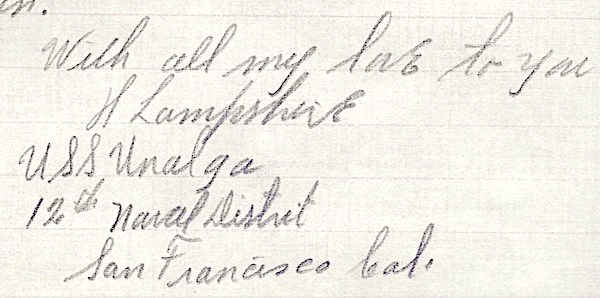 With all my love to you
H Lampshire
USS Unalga
12th Naval District
San Francisco Cal.